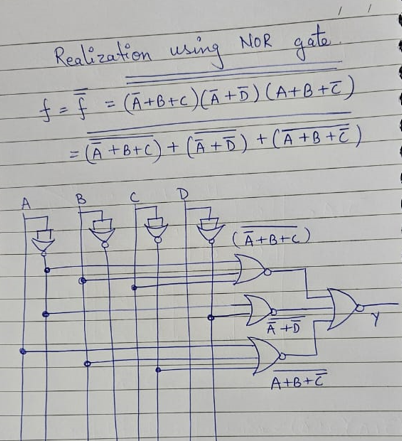 Realization using NOR gate.
f = f̿ = (Ā+B+C)(Ā+D̄)(A+B+C̄)
= (Ā+B+C)‾ + (Ā+D̄)‾ + (A+B+C̄)‾
A B C D
(Ā+B+C)‾
(Ā+D̄)‾
Y
(A+B+C̄)‾